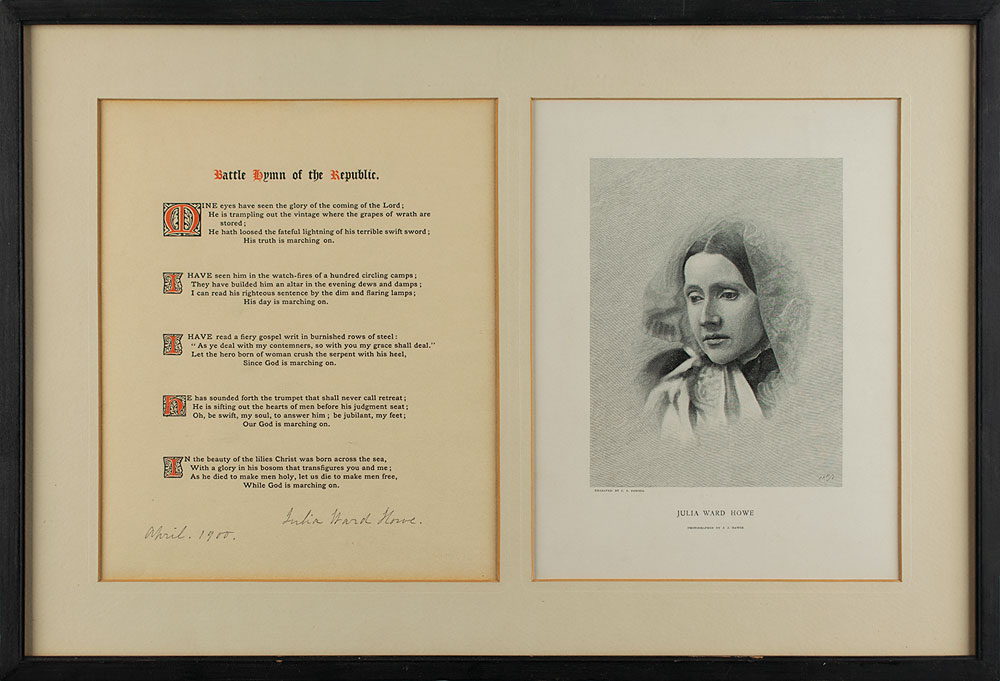 Battle Hymn of the Republic.
MINE eyes have seen the glory of the coming of the Lord;
He is trampling out the vintage where the grapes of wrath are
stored;
He hath loosed the fateful lightning of his terrible swift sword;
His truth is marching on.
I HAVE seen him in the watch-fires of a hundred circling camps;
They have builded him an altar in the evening dews and damps;
I can read his righteous sentence by the dim and flaring lamps;
His day is marching on.
I HAVE read a fiery gospel writ in burnished rows of steel:
"As ye deal with my contemners, so with you my grace shall deal."
Let the hero born of woman crush the serpent with his heel,
Since God is marching on.
HE has sounded forth the trumpet that shall never call retreat;
He is sifting out the hearts of men before his judgment seat;
Oh, be swift, my soul, to answer him; be jubilant, my feet;
Our God is marching on.
IN the beauty of the lilies Christ was born across the sea,
With a glory in his bosom that transfigures you and me;
As he died to make men holy, let us die to make men free,
While God is marching on.
Julia Ward Howe.
April. 1900.
ENGRAVED BY
JULIA WARD HOWE
PHOTOGRAPHED BY J. J. HAWES